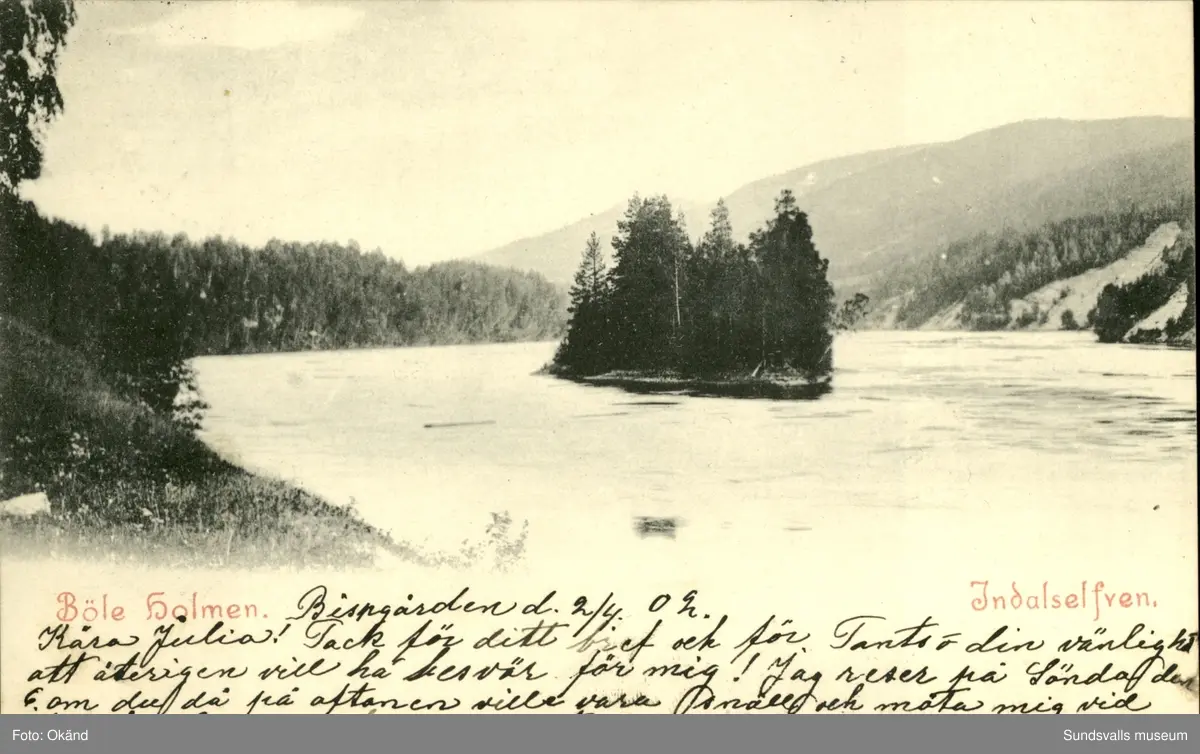 Böle Holmen.
Indalselfven.
Bispgården d. 2/4 02.
Kära Julia! Tack för ditt bref och för Tants o din vänlighet
att återigen vill ha besvär för mig! Jag reser på Sönda den
6. om du då på aftonen ville vara snäll och möta mig vid
Foto: Okänd
Sundsvalls museum